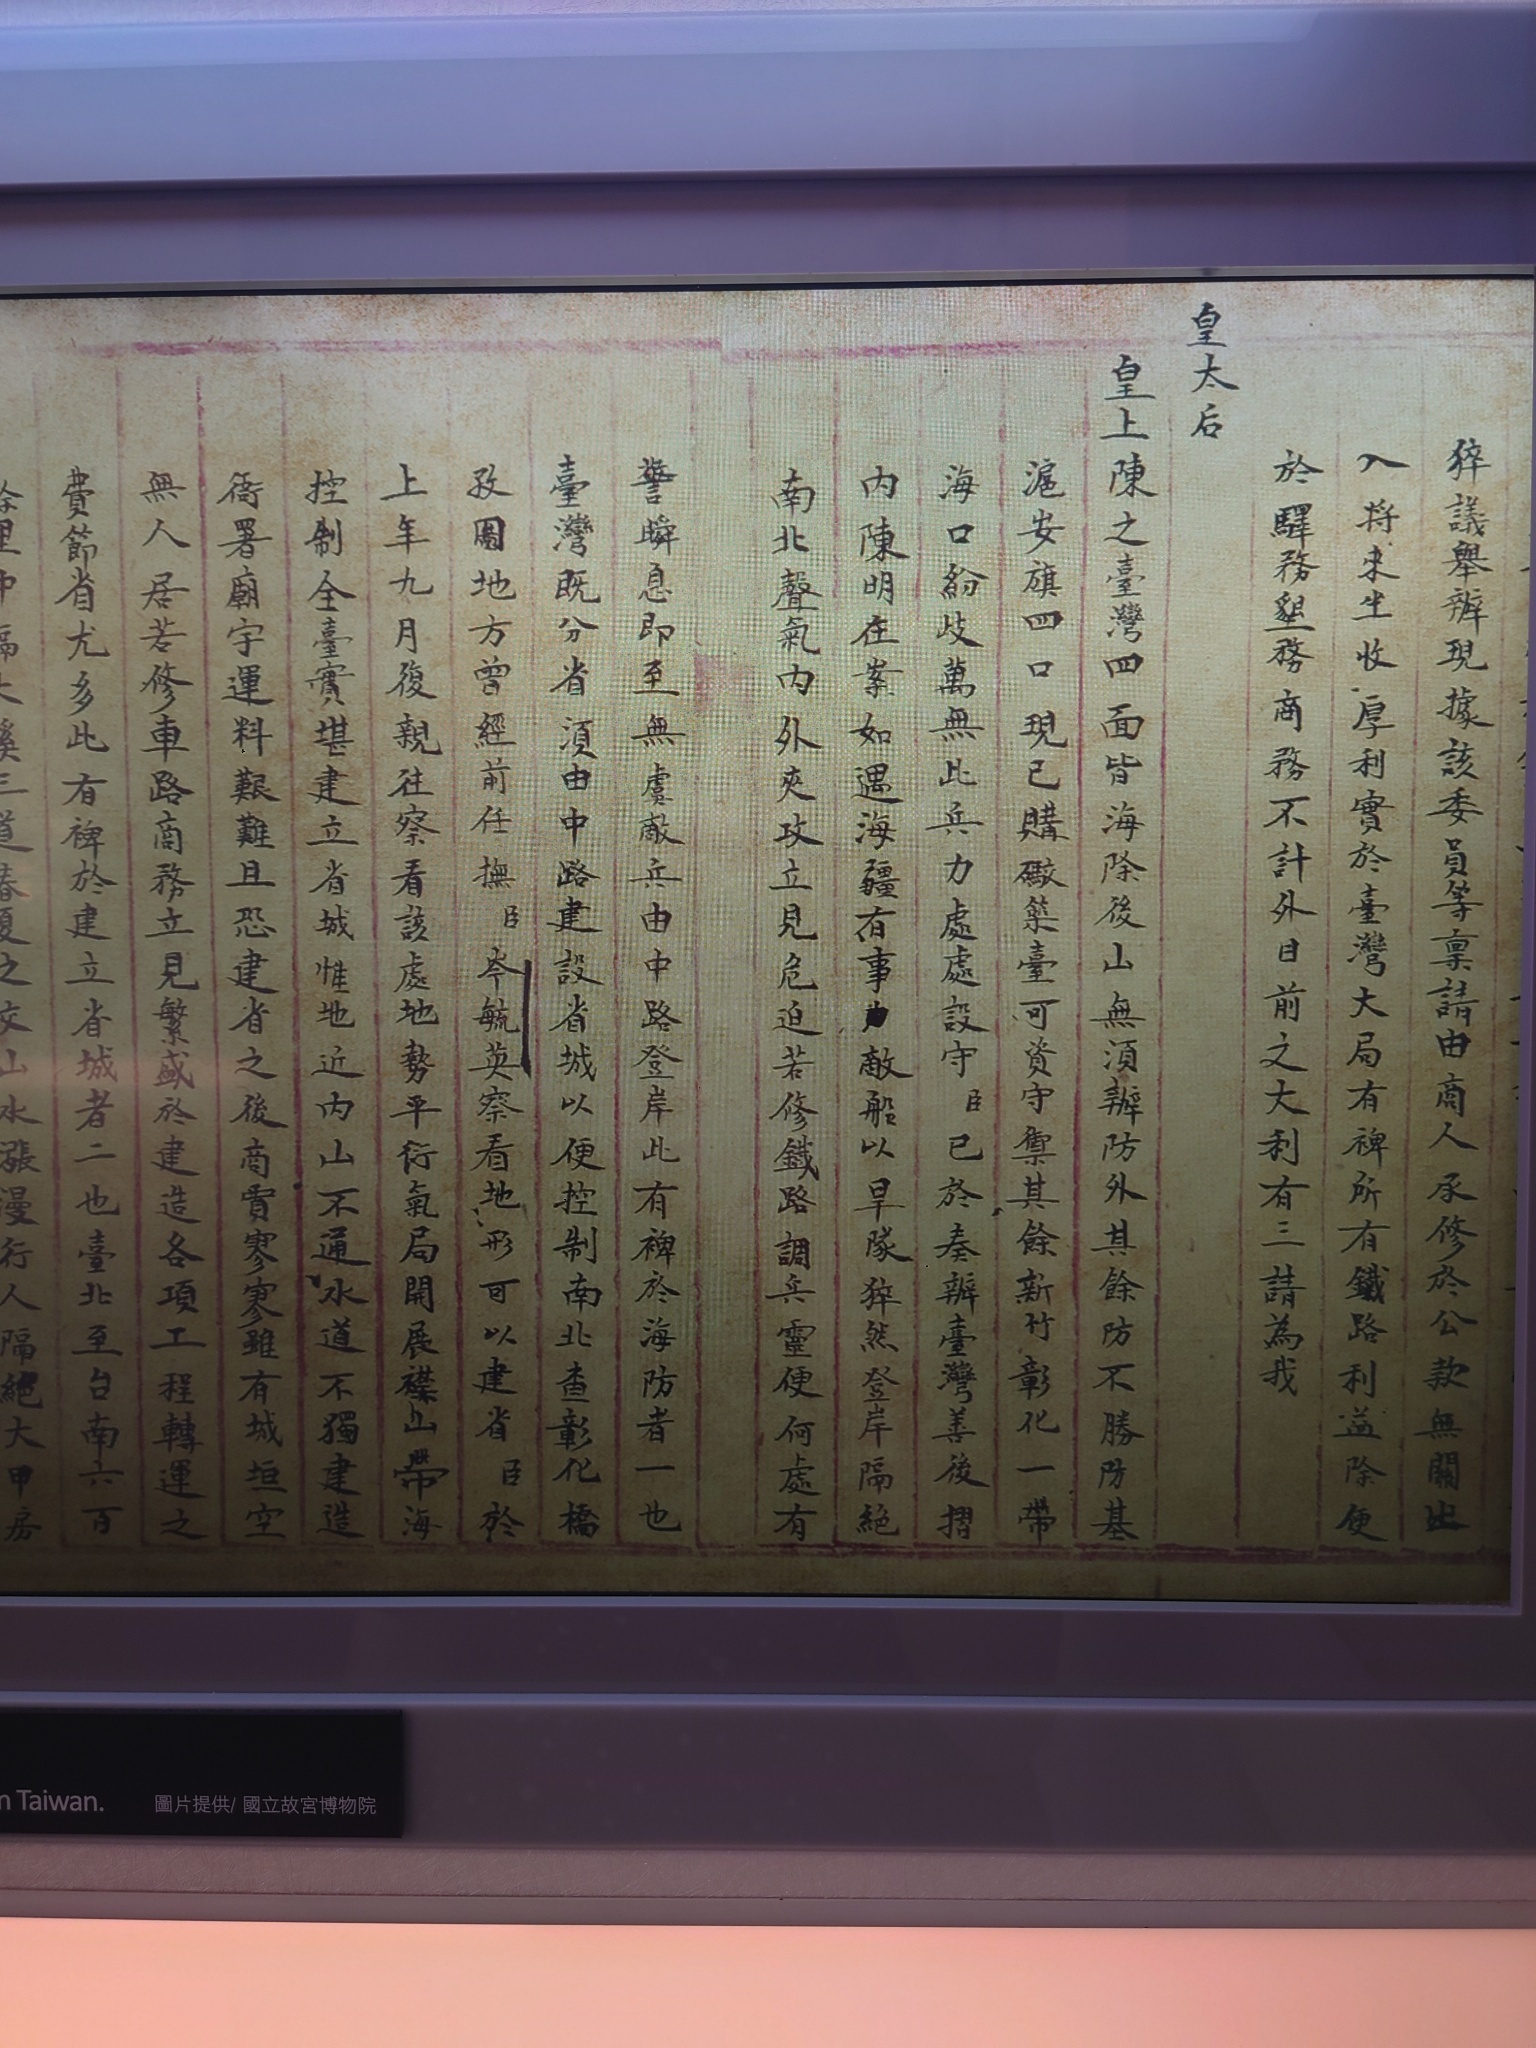 猝議舉辦現據該委員等稟請由商人承修於公款無關出
入將來坐收厚利實於臺灣大局有裨所有鐵路利益除便
於驛務墾務商務不計外日前之大利有三請為我
皇太后
皇上陳之臺灣四面皆海除後山無須辦防外其餘防不勝防基
滬安旗四口現已購礮築臺可資守禦其餘新竹彰化一帶
海口紛歧萬無此兵力處處設守臣已於奏辦臺灣善後摺
內陳明在案如遇海疆有事敵船以旱隊猝然登岸隔絕
南北聲氣內外夾攻立見危迫若修鐵路調兵靈便何處有
警瞬息即至無虞敵兵由中路登岸此有裨於海防者一也
臺灣既分省須由中路建設省城以便控制南北查彰化橋
孜圖地方曾經前任撫臣岑毓英察看地形可以建省臣於
上年九月復親往察看該處地勢平衍氣局開展襟山帶海
控制全臺實堪建立省城惟地近內山不通水道不獨建造
衙署廟宇運料艱難且恐建省之後商賈寥寥雖有城垣空
無人居若修車路商務立見繁盛於建造各項工程轉運之
費節省尤多此有裨於建立省城者二也臺北至台南六百
餘里中隔大溪三道春夏之交山水漲漫行人隔絕大甲房
n Taiwan. 圖片提供/ 國立故宮博物院